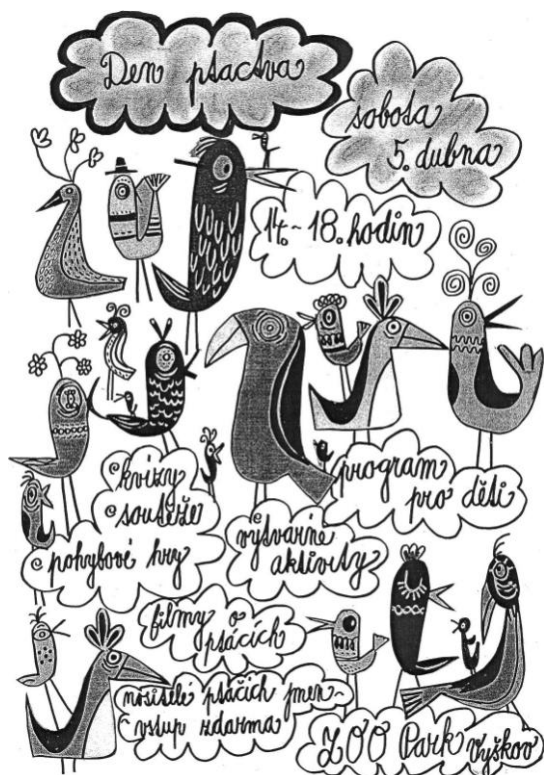 Den ptactva
sobota
5. dubna
14. - 18. hodin
kvízy
soutěže
pohybové hry
program
pro děti
výtvarné
aktivity
filmy o
ptácích
nositelé ptačích jmen -
vstup zdarma
ZOO Park Vyškov